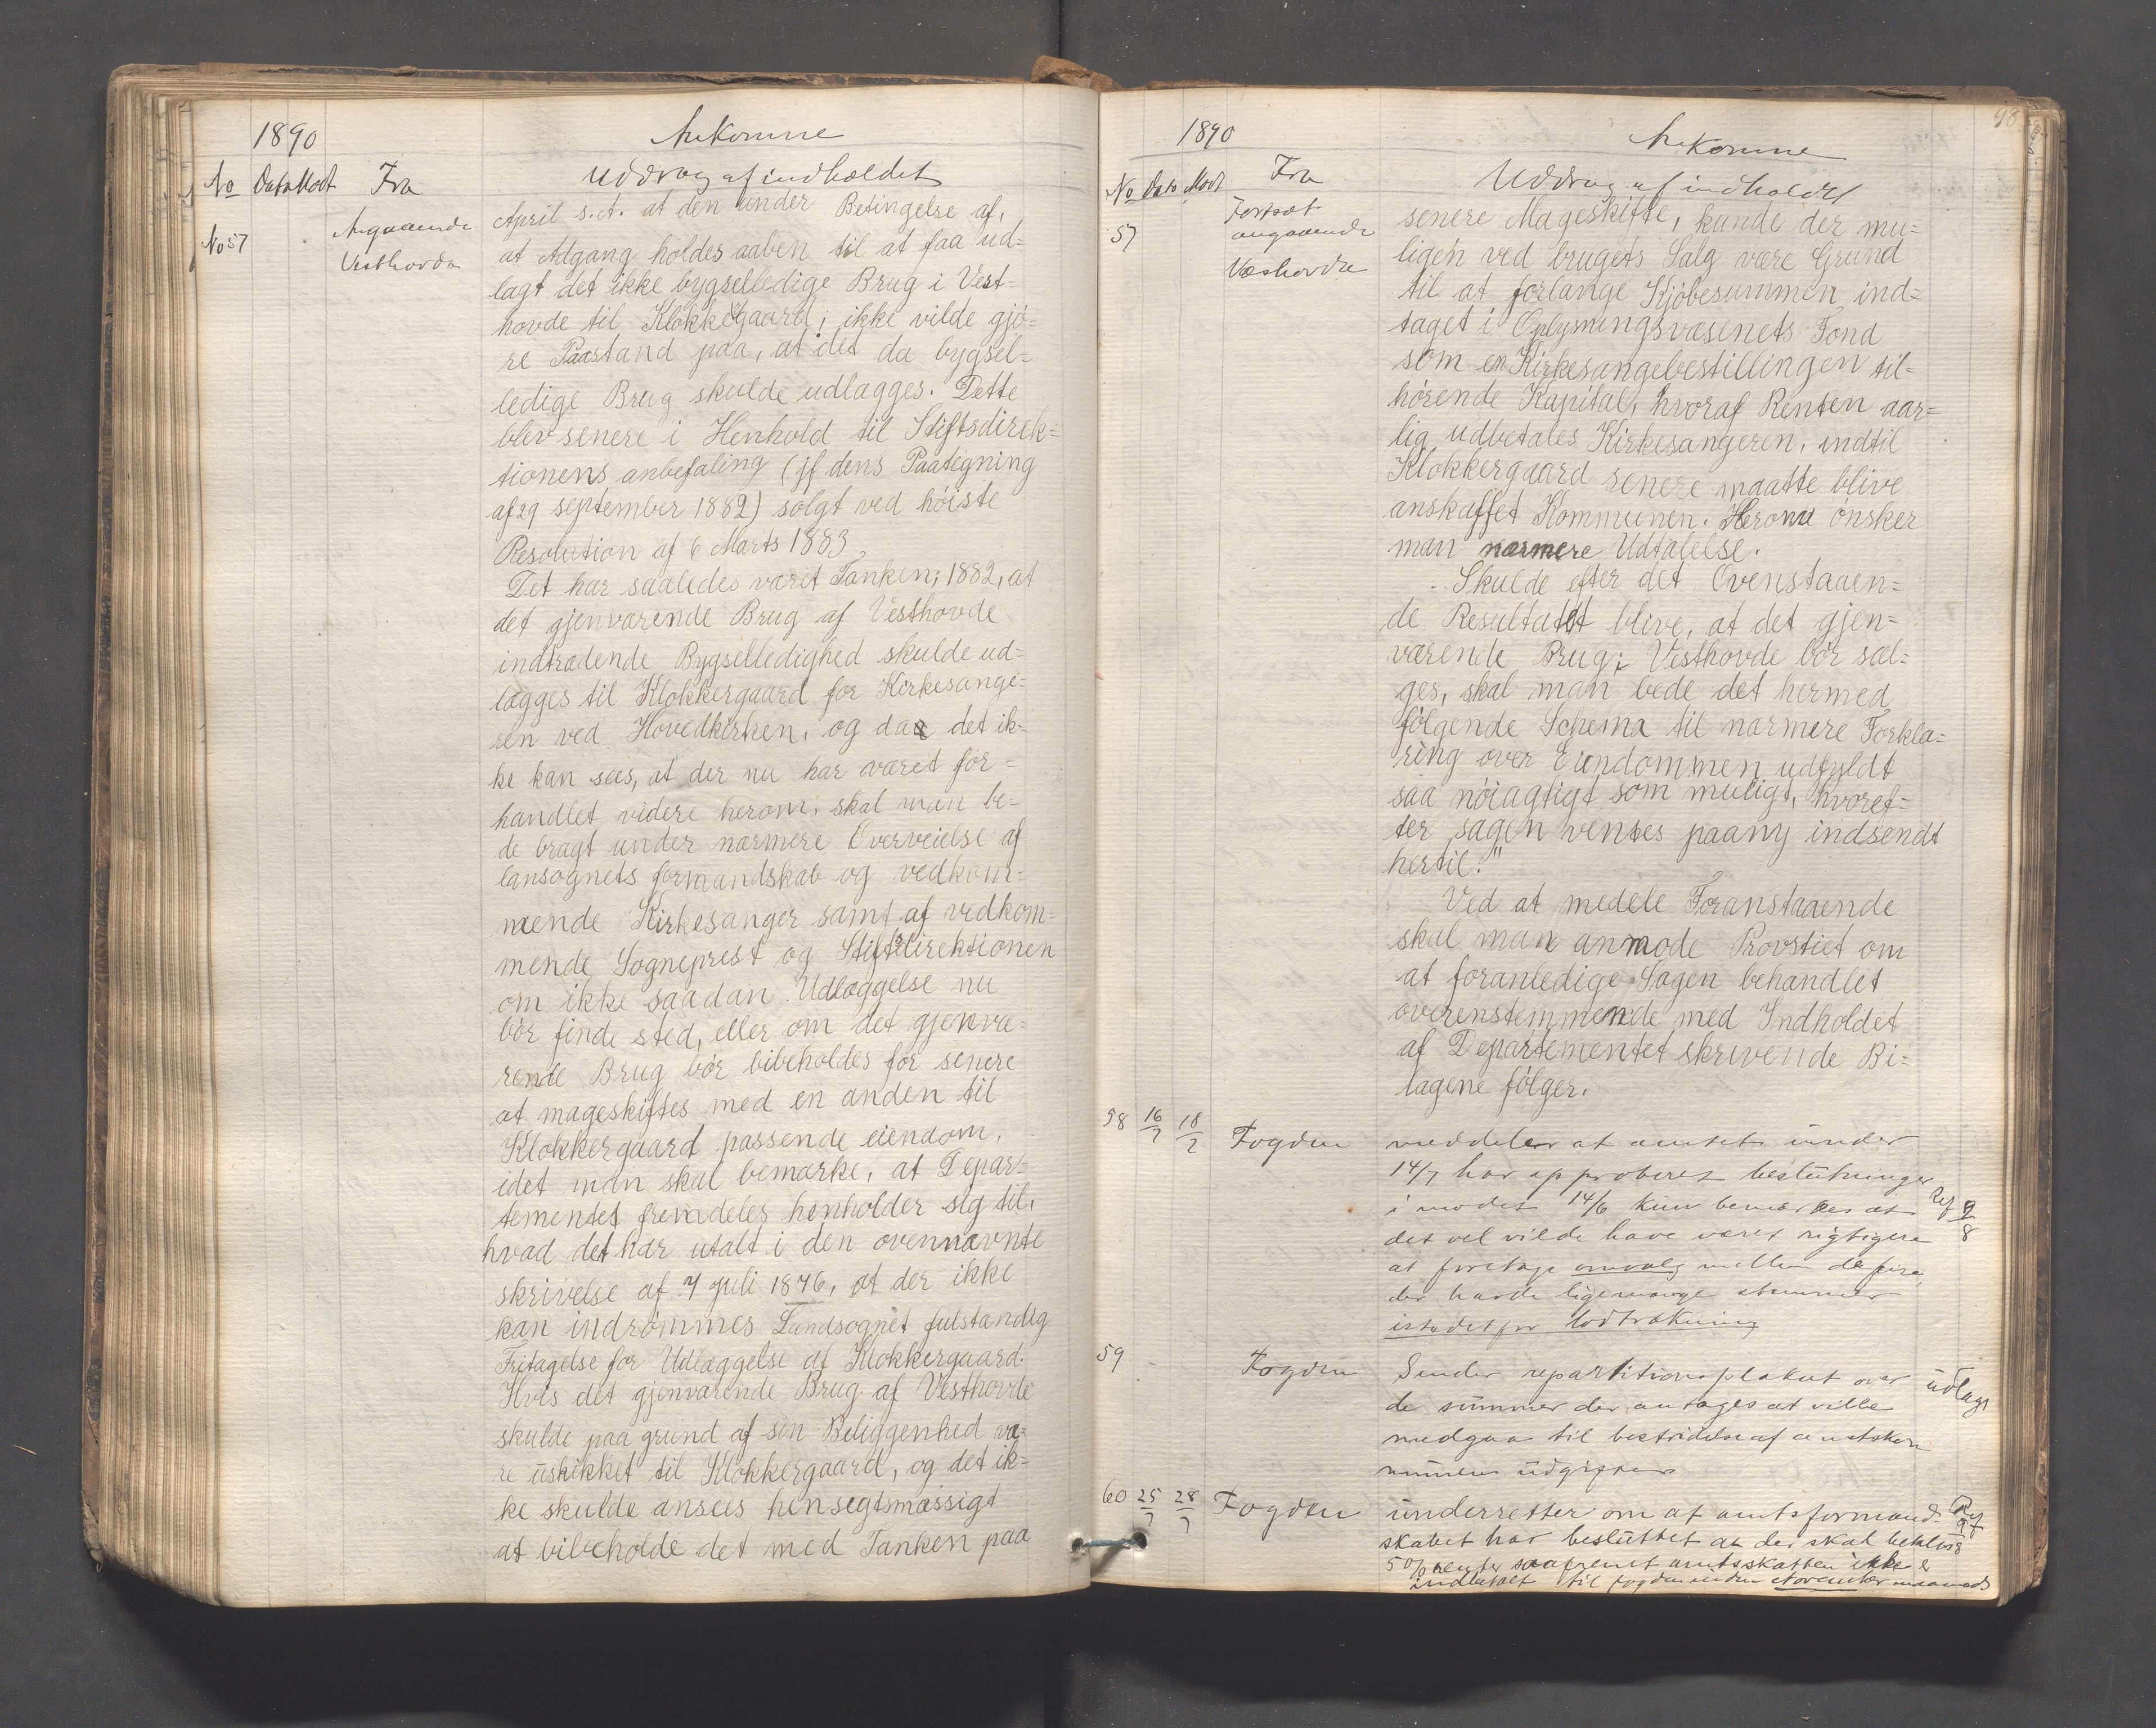 1890
Ankomne
No Dato Modt Fra Uddrag af indholdet
No 57
Angaaende
Vesthovde
April s.A. at den under Betingelse af,
at Adgang holdes aaben til at faa ud=
lagt det ikke bygselledige Brug i Vest=
hovde til Klokkergaard; ikke vilde gjö=
re Paastand paa, at det da bygsel=
ledige Brug skulde udlægges. Dette
blev senere i Henhold til Stiftsdirek=
tionens anbefaling (jf dens Paategning
af 29 september 1882) solgt ved höiste
Resolution af 6 Marts 1883
Det har saaledes været Tanken i 1882, at
det gjenværende Brug af Vesthovde
indtrædende Bygselledighed skulde ud=
lægges til Klokkergaard for Kirkesange=
ren ved Hovedkirken, og da det ik=
ke kan sees, at der nu har været for=
handlet videre herom, skal man be=
de bragt under nærmere Overveielse af
lansognets formandskab og vedkom=
mende Kirkesanger samt af vedkom=
mende Sogneprest og Stiftsdirektionen
om ikke saadan Udlæggelse nu
bör finde sted, eller om det gjenvæ=
rende Brug bör bibeholdes for senere
at mageskiftes med en anden til
Klokkergaard passende eiendom,
idet man skal bemærke, at Depar=
tementet fremdeles henholder sig til,
hvad det har utalt i den ovennævnte
skrivelse af 7 juli 1876, at der ikke
kan indrømmes Landsognet fulstændig
Fritagelse for Udlæggelse af Klokkergaard.
Hvis det gjenværende Brug af Vesthovde
skulde paa grund af sin Beliggenhed væ=
re uskikket til Klokkergaard, og det ik=
ke skulde ansees hensegtsmæssigt
at bibeholde det med Tanken paa
98
1890
Ankomne
No Dato Modt Fra Uddrag af indholdet
57
Fortsat
angaaende
Væshovde
senere Mageskifte, kunde der mu=
ligen ved brugets Salg være Grund
til at forlange Kjöbesummen ind=
taget i Oplysningsvæsenets Fond
som en Kirkesangebestillingen til=
hørende Kapital, hvoraf Renten aar=
lig udbetales Kirkesangeren, indtil
Klokkergaard senere maatte blive
anskaffet Kommunen. Herom ønsker
man nærmere Udtalelse.
Skulde efter det Ovenstaaen=
de Resultatet blive, at det gjen=
værende Brug i Vesthovde bör sæl=
ges, skal man bede det hermed
følgende Schema til nærmere Forkla=
ring over Eiendommen udfyldt
saa nöiagtigt som muligt, hvoref=
ter sagen ventes paany indsendt
hertil."
Ved at medele Foranstaaende
skal man anmode Provstiet om
at foranledige Sagen behandlet
overenstemmende med Indholdet
af Departementet skrivende Bi=
lagene følger.
58 16/7 18/7 Fogden meddeler at amtet under
14/7 har approberet beslutninger
i mødet 14/6 kun bemærkes at Ref 9/8
det vel vilde have været rigtigere
at foretage omvalg mellem de fire,
der havde ligemange stemmer
istedetfor lodtrækning
59 Fogden Sender repartitionsplakat over udlagt
de summer der antages at ville
medgaa til bestridelse af amtskom
munens udgifter
60 25/7 28/7 Fogden underretter om at amtsformand= Ref 9/8
skabet har besluttet at der skal betales
5 % renter saafremt amtsskatten ikke e
indbetalt til fogden inden November maaneds